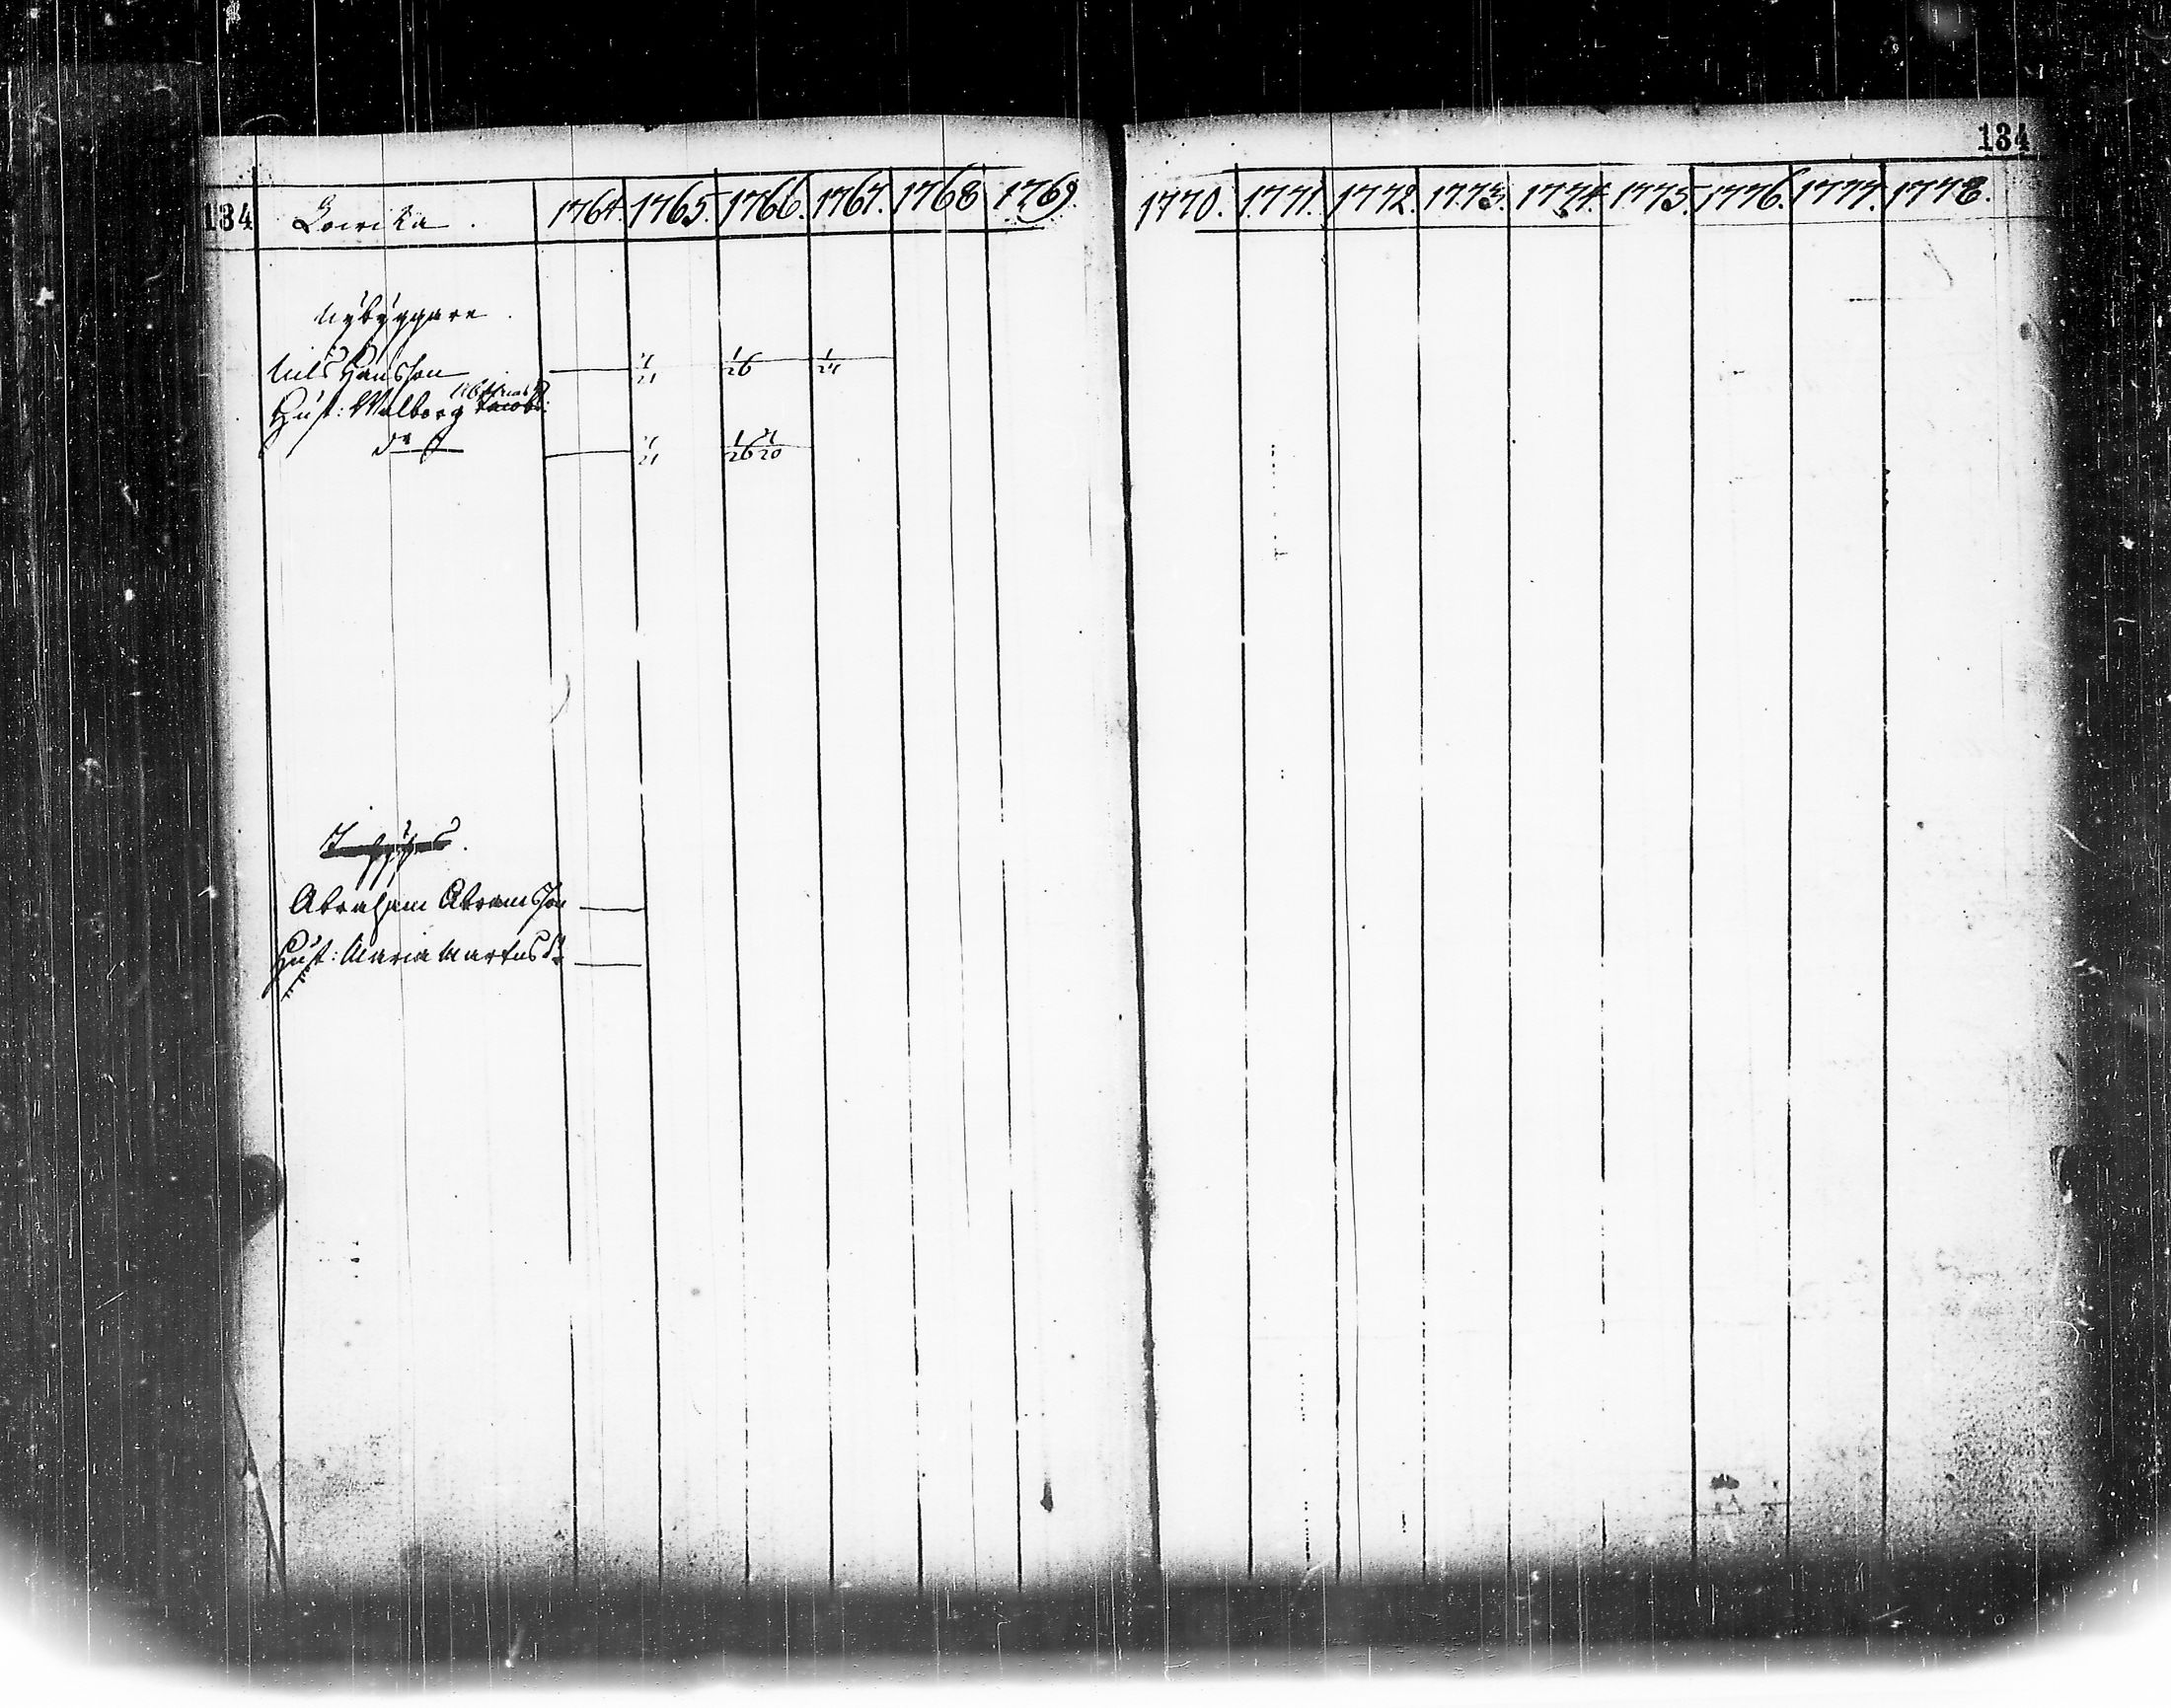 134
134 Lovika. 1764. 1765. 1766. 1767. 1768 1769 1770. 1771. 1772. 1773. 1774. 1775. 1776. 1777. 1778.
Nybyggare.
Nils Hansson 1/21 1/26 1/21
Hust: Walborg Jacobs:
dr 1/21 1/26 20
Abraham Abramsson
Hust: Maria Martensdr